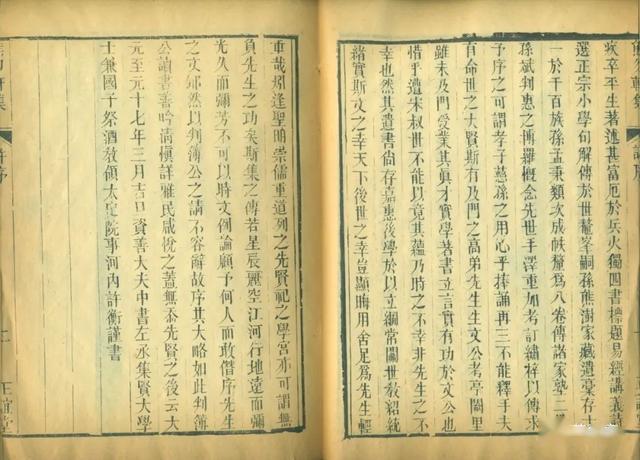 疾卒平生著述甚富厄於兵火獨四書標題易經講義詩
選正宗小學句解傳於世鰲峯嗣孫熊澍家藏遺稾存十
一於千百族孫孟秉類次成帙釐爲八卷傳諸家塾二
孫斌判惠之博羅槪念先世手澤重加考訂繡梓以傳求
予序之可謂孝子慈孫之用心乎捧誦再三不能釋手夫
百命世之大賢斯有及門之高弟先生生文公考亭闕里
雖未及門受業其眞才實學著書立言實有功於文公也
惜乎遭宋叔世不能以竟其蘊乃時之不幸非先生之不
幸也然其遺書尙存嘉惠後學於以立綱常關世敎紹統
緖實斯文之幸天下後世之幸豈顯晦用舍足爲先生輕
重哉矧逢聖明崇儒重道列之先賢祀之學宮亦可謂無
負先生之功矣斯集之傳若星辰麗空江河行地遠而彌
光久而彌芳不可以時文例論顧予何人而敢僭序先生
之文邪然以判簿公之請不容辭故序其大略如此判簿
公讀書善吟淸愼詳雅民咸悅之蓋無忝先賢之後云大
元至元十七年三月吉日資善大夫中書左丞集賢大學
士兼國子祭酒敎領太史院事河內許衡謹書